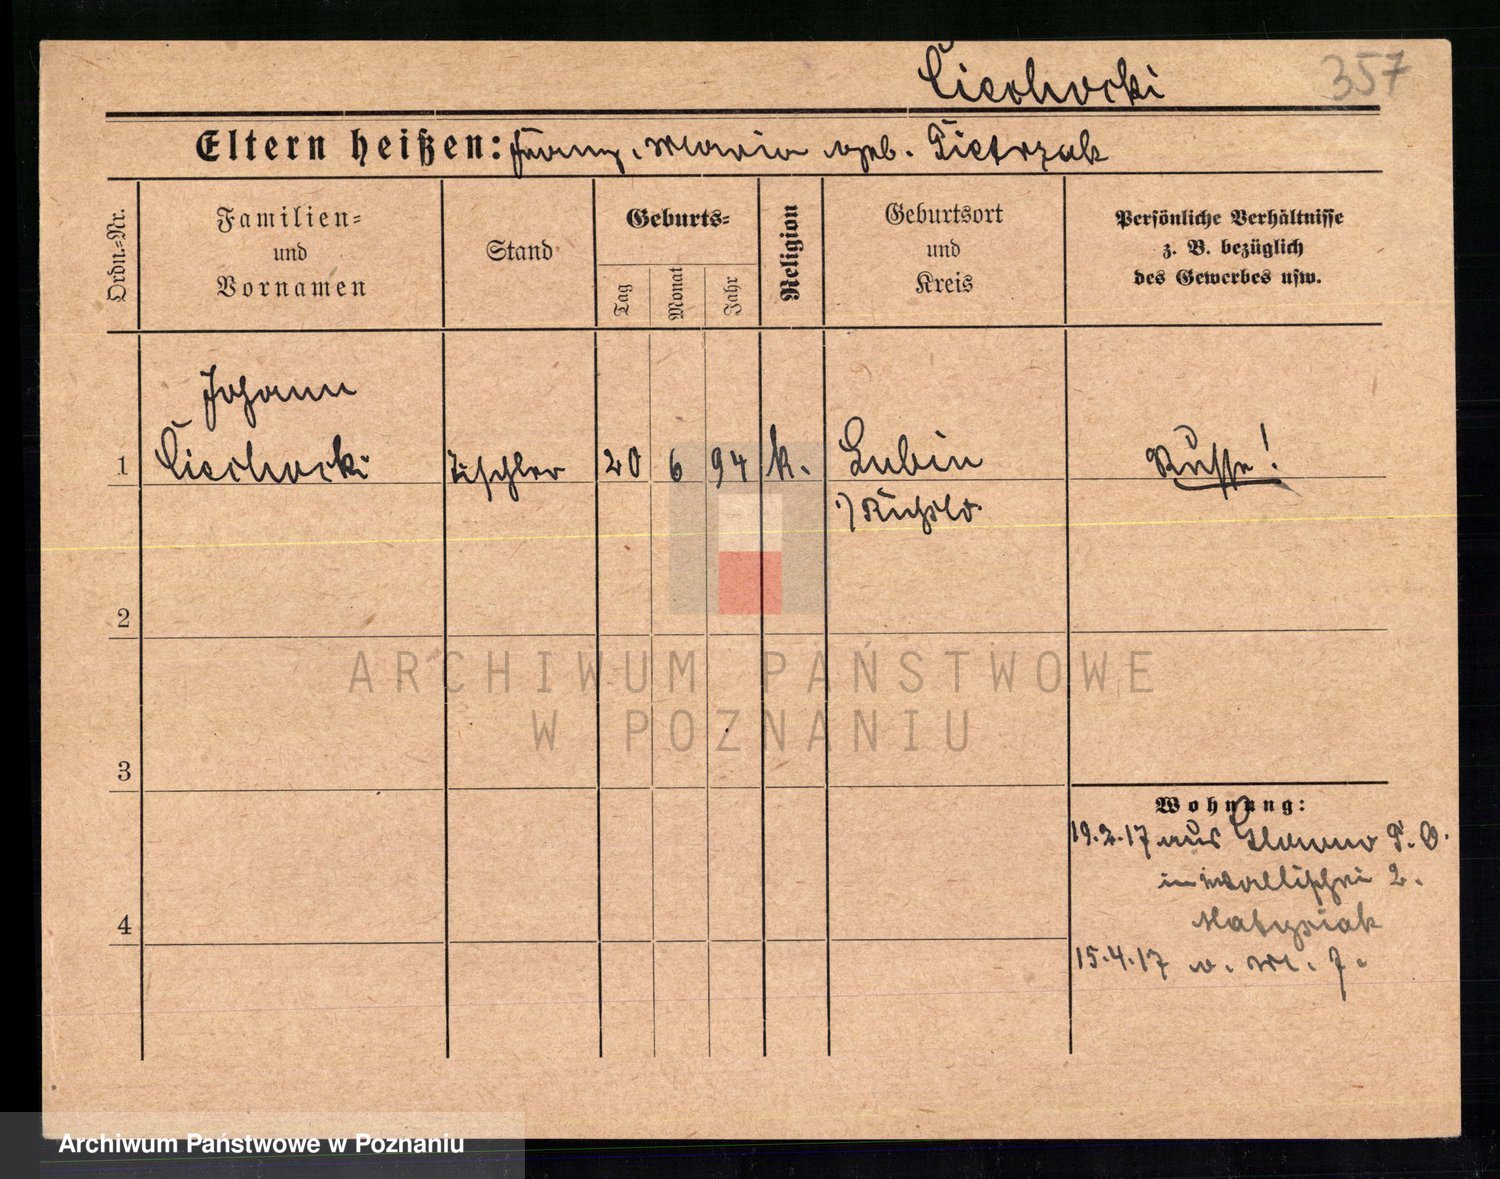 Ciechocki 357
Eltern heißen: Franz, Maria geb. Pietrzak
Ordn.=Nr.
Familien=
und
Vornamen
Stand
Geburts=
Tag
Monat
Jahr
Religion
Geburtsort
und
Kreis
Persönliche Verhältnisse
z. B. bezüglich
des Gewerbes usw.
Johann
1 Ciechocki Tischler 20 6 94 k. Lubin Russe!
2
3
4
Wohnung:
19.2.17 aus P. O.
in Wallischei 2.
Matysiak
15.4.17 v. M. 7.
ARCHIWUM PAŃSTWOWE
W POZNANIU
Archiwum Państwowe w Poznaniu